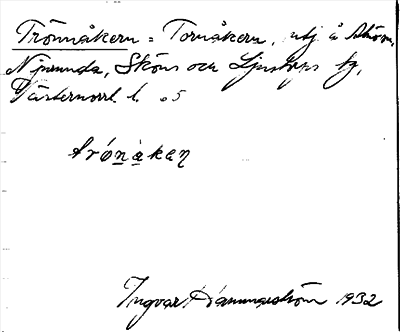 Trönnåkern = Tornåkern, utj å Ström,
Njurunda, Sköns och Ljustorps tg,
Västernorrl. l. s
trónàkaŋ
Ingvar Hammarström 1932